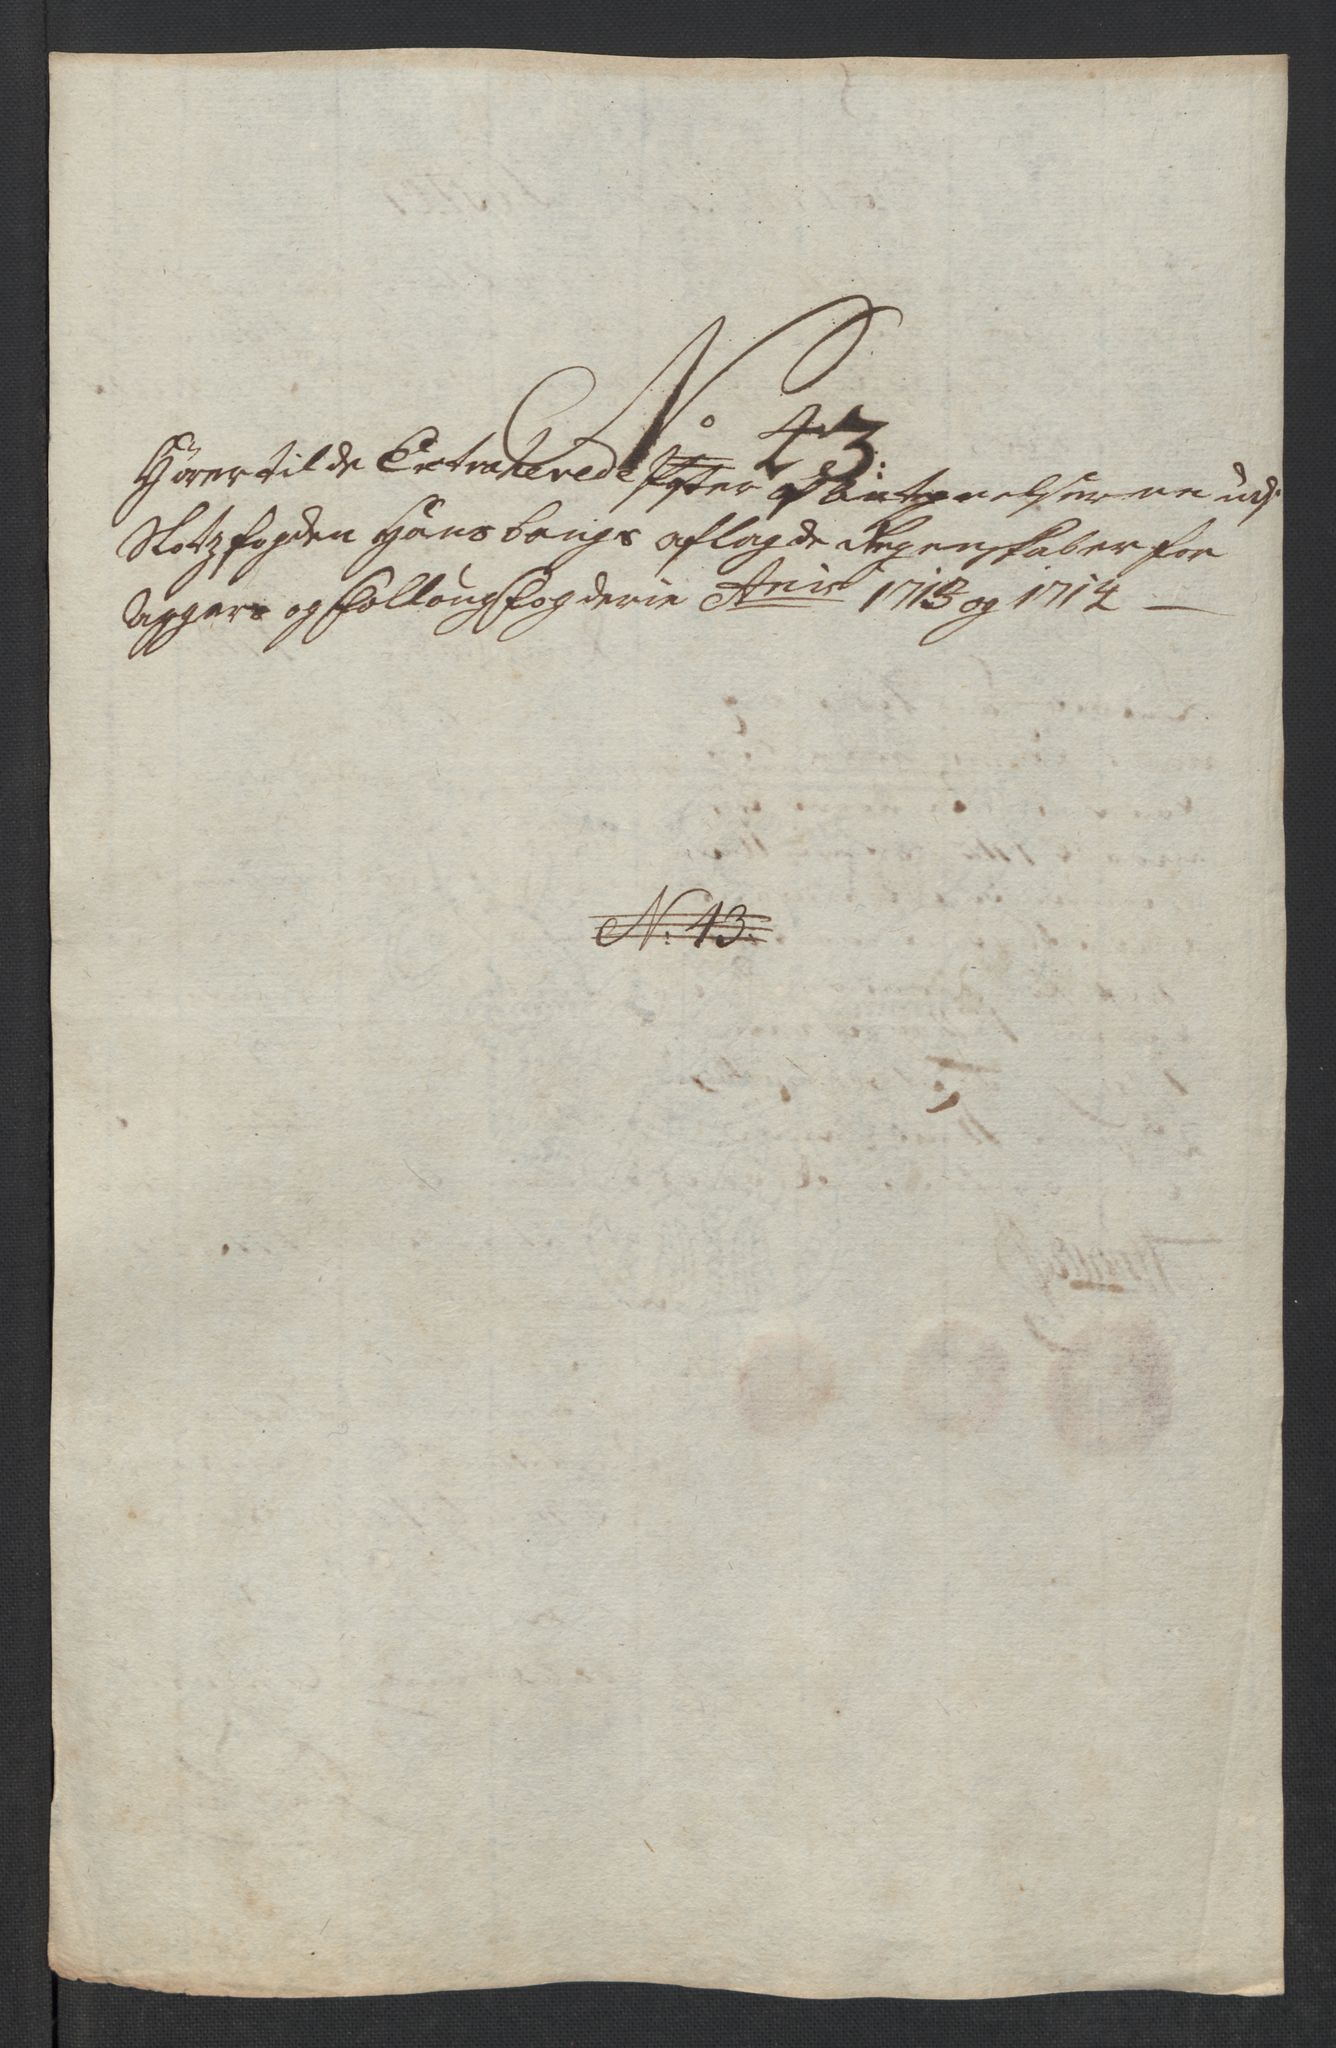 No 43:
Hører til de Extraherede Poster af Antegnelserne udj
Slotzfogden Hans bangs aflagde Regenskaber for
Aggers og Follougs fogderie Anis 1713 og 1714 —
N: 13.